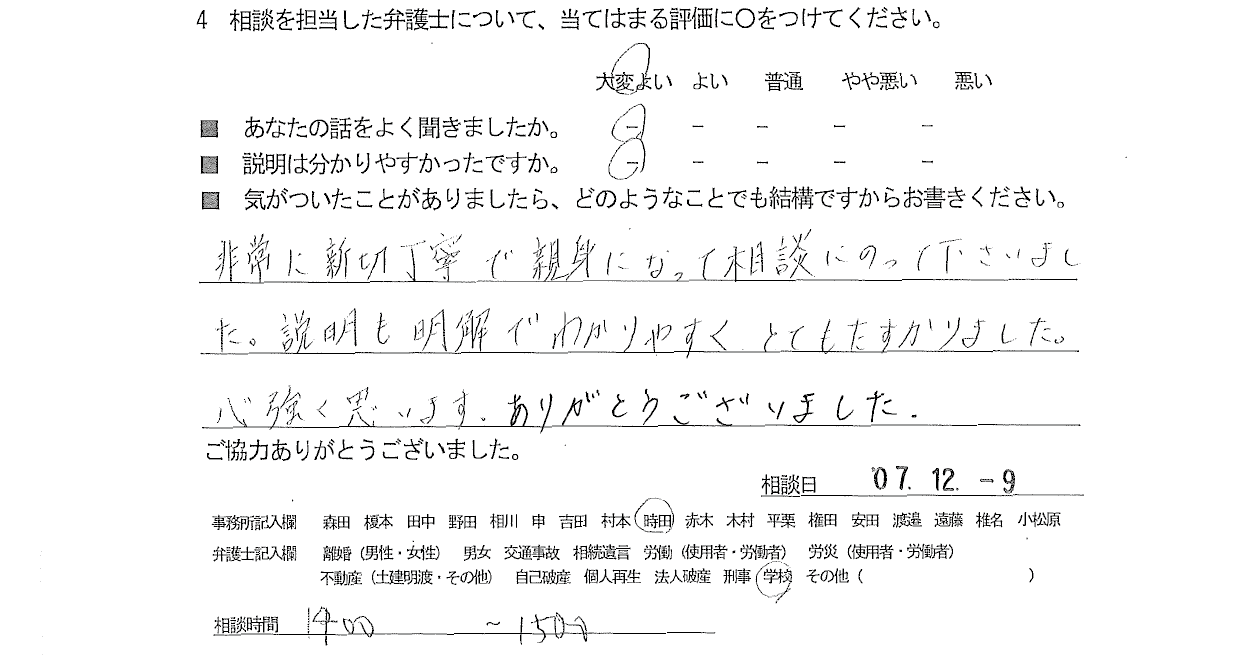 4 相談を担当した弁護士について、当てはまる評価に〇をつけてください。
大変よい よい 普通 やや悪い 悪い
■ あなたの話をよく聞きましたか。 - - - - -
■ 説明は分かりやすかったですか。 - - - - -
■ 気がついたことがありましたら、どのようなことでも結構ですからお書きください。
非常に新切丁寧で親身になって相談にのって下さいまし
た。説明も明解でわかりやすく とてもたすかりました。
心強く思います。ありがとうございました.
ご協力ありがとうございました。
相談日 '07. 12. -9
事務所記入欄 森田 榎本 田中 野田 相川 申 吉田 村本 時田 赤木 木村 平栗 権田 安田 渡邉 遠藤 椎名 小松原
弁護士記入欄 離婚(男性・女性) 男女 交通事故 相続遺言 労働(使用者・労働者) 労災(使用者・労働者)
不動産(土建明渡・その他) 自己破産 個人再生 法人破産 刑事 学校 その他( )
相談時間 1400 ~ 1500